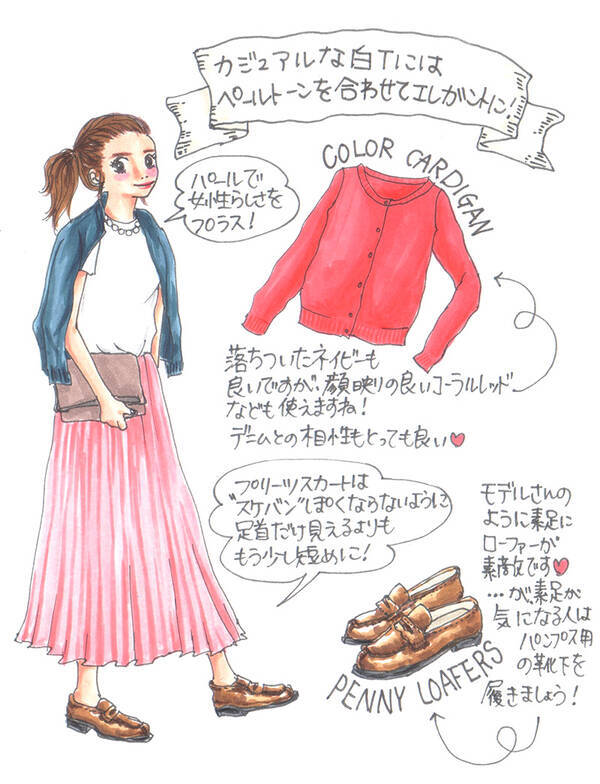 カジュアルな白Tには
ペールトーンを合わせてエレガントに！
COLOR CARDIGAN
パールで
女性らしさを
プラス！
落ちついたネイビーも
良いですが、顔映りの良いコーラルレッド
なども使えますね！
デニムとの相性もとっても良い♥
プリーツスカートは
"スケバン"ぽくならないように
足首だけ見えるよりも
もう少し短めに！
モデルさんの
ように素足に
ローファーが
素敵です♥
…が、素足が
気になる人は
パンプス用
の靴下を
履きましょう！
PENNY LOAFERS